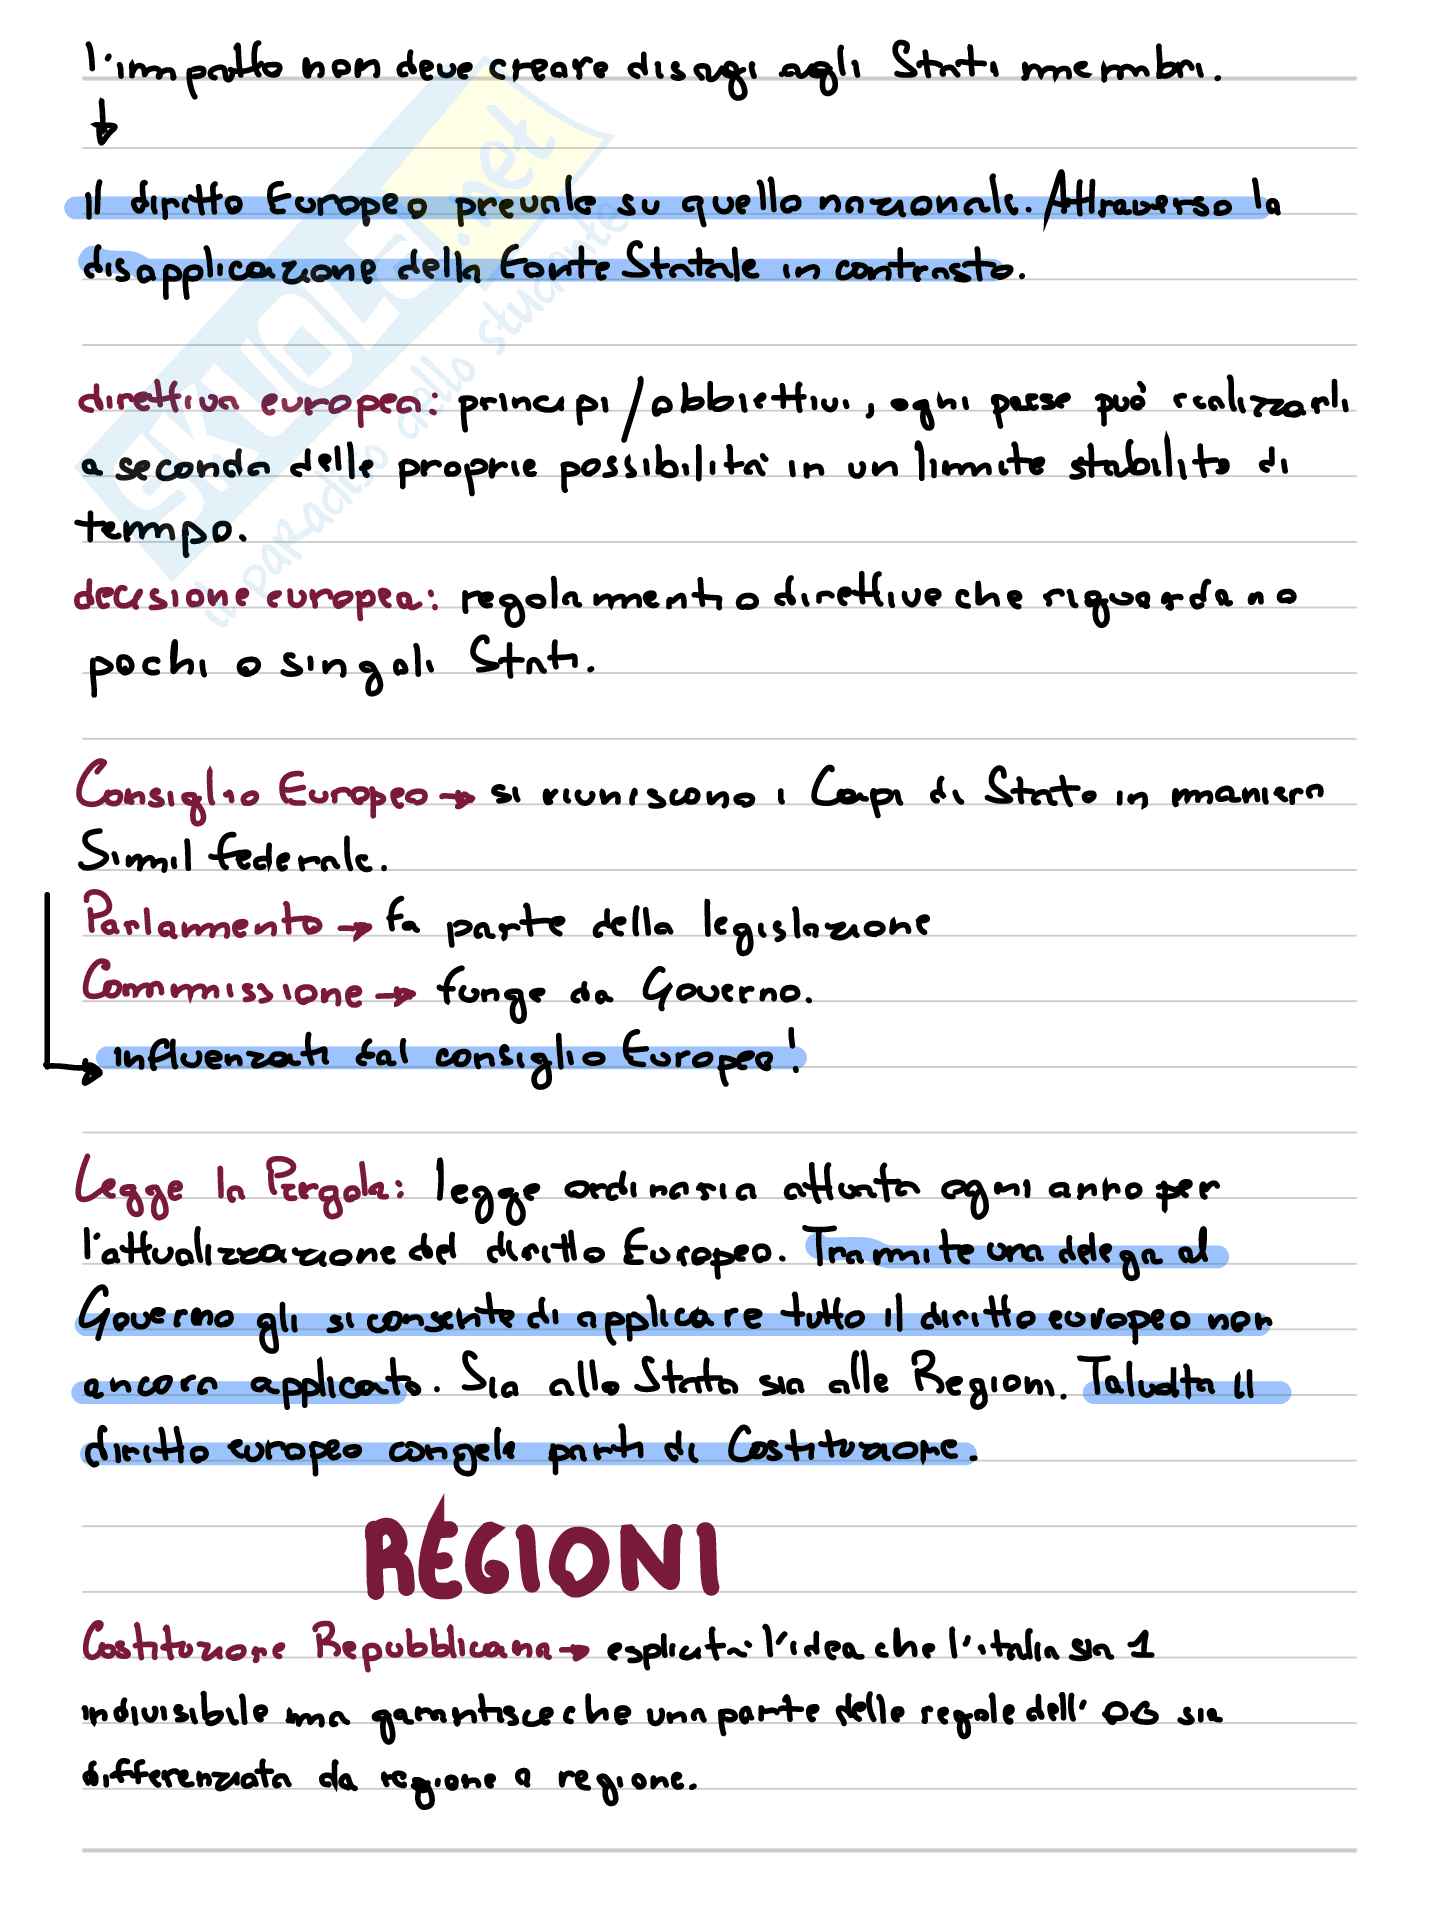 l'impatto non deve creare disagi agli Stati membri.
↓
Il diritto Europeo prevale su quello nazionale. Attraverso la
disapplicazione della Fonte Statale in contrasto.
direttiva europea: principi/obbiettivi, ogni paese può realizzarli
a seconda delle proprie possibilità in un limite stabilito di
tempo.
decisione europea: regolamenti o direttive che riguardano
pochi o singoli Stati.
Consiglio Europeo → si riuniscono i Capi di Stato in maniera
Simil federale.
Parlamento → fa parte della legislazione
Commissione → funge da Governo.
→ influenzati dal consiglio Europeo!
Legge la Pergola: legge ordinaria attuata ogni anno per
l'attualizzazione del diritto Europeo. Tramite una delega al
Governo gli si consente di applicare tutto il diritto europeo non
ancora applicato. Sia allo Stato sia alle Regioni. Talvolta il
diritto europeo congela parti di Costituzione.
REGIONI
Costituzione Repubblicana → esplicita l'idea che l'italia sia 1
indivisibile ma garantisce che una parte delle regole dell' OG sia
differenziata da regione a regione.
SKUOLA.net
il paradiso dello studente